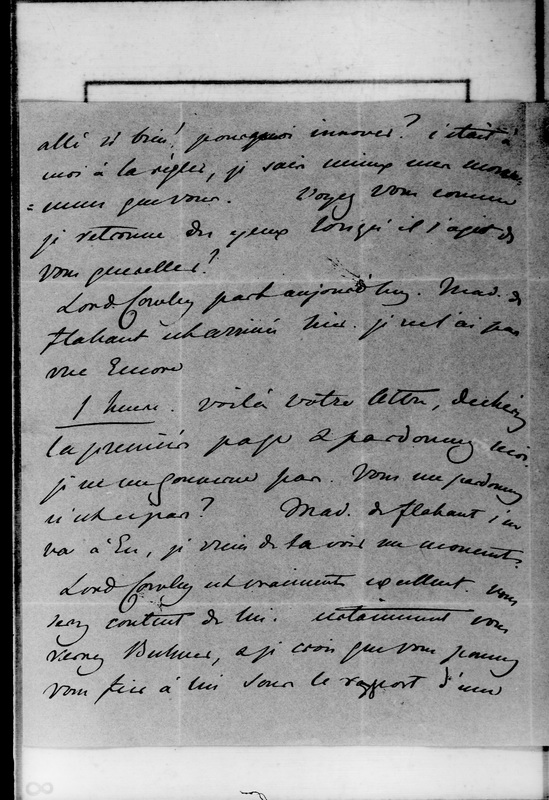 allé si bien! pourquoi innover? c'était à
moi à la régler, je sais mieux mes mouve=
=mens que vous. Voyez vous comme
je retrouve des yeux lorsqu'il s'agit de
vous quereller?
Lord Cowley part aujourd'huy. Mad. de
flahaut est arrivée hier. je ne l'ai pas
vue Encore
1 heure. voilà votre lettre, déchirez
la première page & pardonnez moi.
je ne me gouverne pas. Vous me pardonnez
n'est ce pas? Mad. de flahaut s'en
va à Eu, je viens de la voir un moment.
Lord Cowley est vraiment excellent. vous
serez content de lui. notamment vous
verrez Bulwer, & je crois que vous pouvez
vous fier à lui sous le rapport d'une